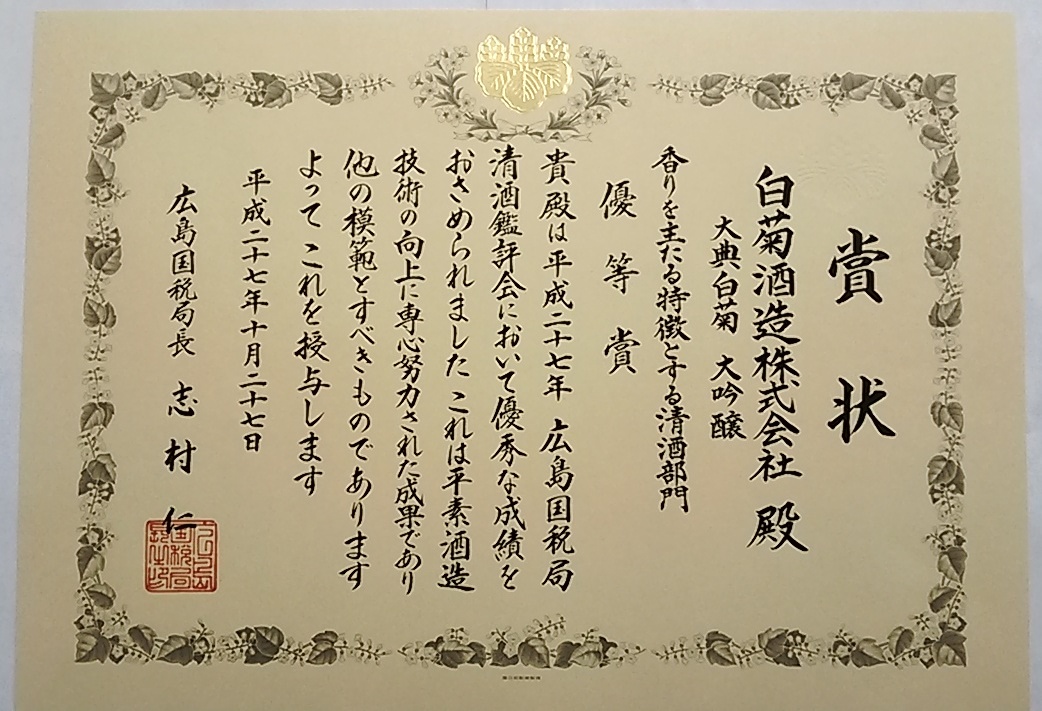 賞状
白菊酒造株式会社 殿
大典白菊 大吟醸
香りを主たる特徴とする清酒部門
優等賞
貴殿は平成二十七年 広島国税局
清酒鑑評会において優秀な成績を
おさめられました これは平素酒造
技術の向上に専心努力された成果であり
他の模範とすべきものであります
よって これを授与します
平成二十七年十月二十七日
広島国税局長 志村 仁